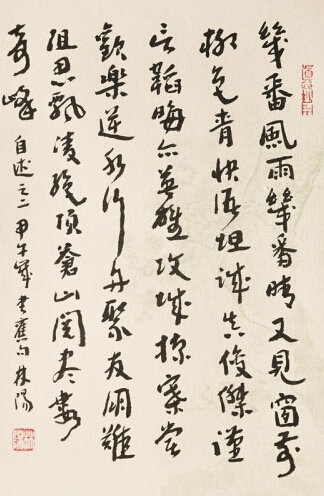 幾番風雨幾番晴又見窗前
柳色青快語坦誠真俊傑謹
言韜晦亦英雄攻城掠寨嘗
歡樂逆水行舟聚友朋難
阻思飄凌絕頂蒼山閱盡數
奇峰 自述之二 甲午歲書舊句 林陽